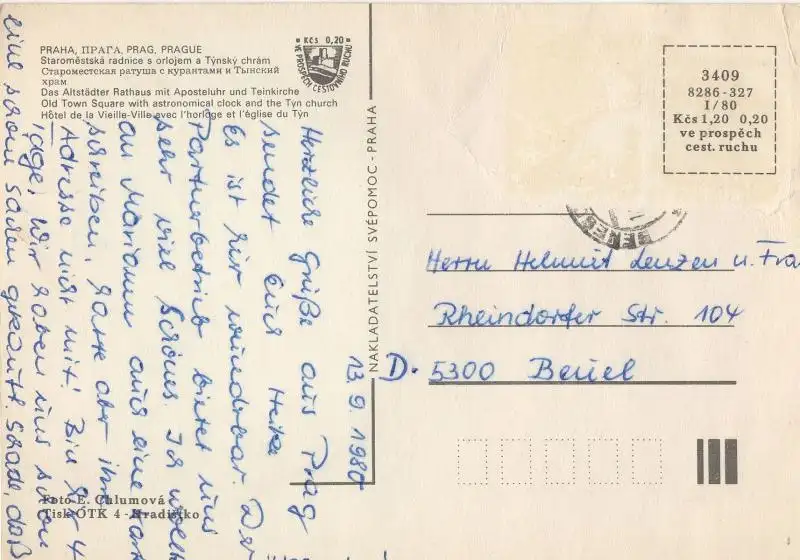 PRAHA, ПРАГА, PRAG, PRAGUE
Staroměstská radnice s orlojem a Týnský chrám
Староместская ратуша с курантами и Тынский
храм
Das Altstädter Rathaus mit Aposteluhr und Teinkirche
Old Town Square with astronomical clock and the Tyn church
Hôtel de la Vieille-Ville avec l'horloge et l'église du Týn
Kčs 0,20
VE PROSPĚCH CESTOVNÍHO RUCHU
13.9.1980
Herzliche Grüße aus Prag
sendet Euch Heike
Es ist hier wunderbar.
Partnerbetrieb bietet uns
sehr viel Schönes. Ich
an Mariann auch eine
schreiben, hatte aber
Adresse nicht mit! Bin
Tage. Wir haben uns schon
eine schon Sachen Schade, daß
Foto E. Chlumová
Tisk OTK 4 - Hradištko
NAKLADATELSTVÍ SVÉPOMOC - PRAHA
3409
8286-327
I/80
Kčs 1,20 0,20
ve prospěch
cest. ruchu
Herrn Helmut Lenzen u. Fra
Rheindorfer Str. 104
D. 5300 Beuel